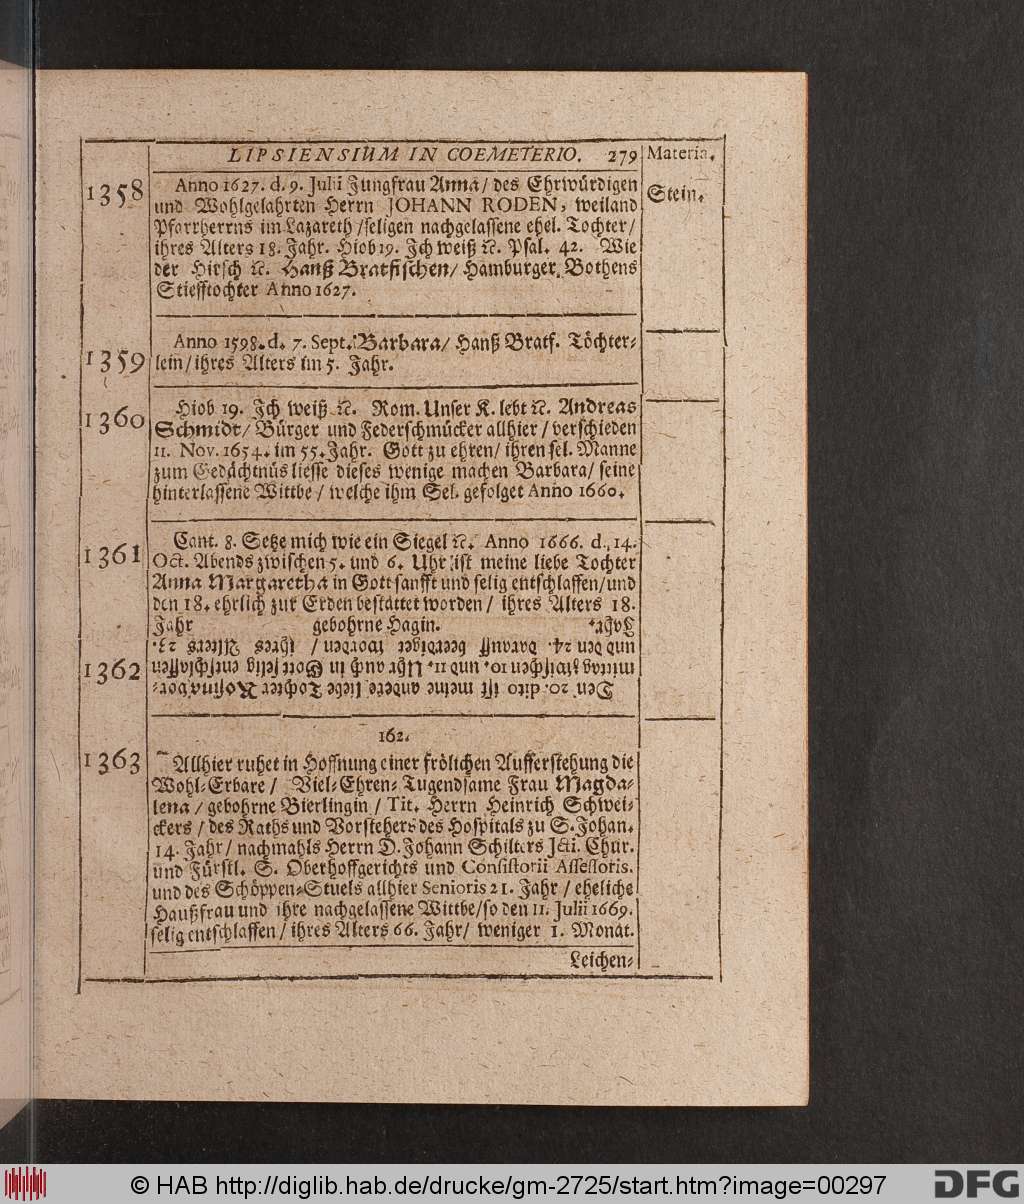 LIPSIENSIUM IN COEMETERIO. 279 Materia.
1358 Anno 1627. d. 9. Julii Jungfrau Anna / des Ehrwürdigen Stein.
und Wohlgelahrten Herrn JOHANN RODEN, weiland
Pfarrherrns im Lazareth / seligen nachgelassene ehel. Tochter /
ihres Alters 18. Jahr. Hiob 19. Ich weiß ꝛc. Psal. 42. Wie
der Hirsch ꝛc. Hanß Bratfischen / Hamburger Bothens
Stiefftochter Anno 1627.
Anno 1598. d. 7. Sept. Barbara / Hanß Bratf. Töchter-
1359 lein / ihres Alters im 5. Jahr.
1360 Hiob 19. Ich weiß ꝛc. Rom. Unser K. lebt ꝛc. Andreas
Schmidt / Bürger und Federschmücker allhier / verschieden
11. Nov. 1654. im 55. Jahr. Gott zu ehren / ihren sel. Manne
zum Gedächtnüs liesse dieses wenige machen Barbara / seine
hinterlassene Wittbe / welche ihm Sel. gefolget Anno 1660.
1361 Cant. 8. Setze mich wie ein Siegel ꝛc. Anno 1666. d. 14.
Oct. Abends zwischen 5. und 6. Uhr ist meine liebe Tochter
Anna Margaretha in Gott sanfft und selig entschlaffen / und
den 18. ehrlich zur Erden bestattet worden / ihres Alters 18.
Jahr gebohrne Hagin.
1362 Den 20. dito ist meine andere liebe Tochter Rosina Dor-
mittag zwischen 10. und 11. Uhr auch in Gott selig entschlaffen
und den 24. darauff beerdiget worden / ihres Alters 23.
Jahr.
162.
1363 Allhier ruhet in Hoffnung einer frölichen Aufferstehung die
Wohl-Erbare / Viel-Ehren-Tugendsame Frau Magda-
lena / gebohrne Bierlingin / Tit. Herrn Heinrich Schwei-
ckers / des Raths und Vorstehers des Hospitals zu S. Johan.
14. Jahr / nachmahls Herrn D. Johann Schilters Jcti. Chur.
und Fürstl. S. Oberhoffgerichts und Consistorii Assessoris.
und des Schöppen-Stuels allhier Senioris 21. Jahr / eheliche
Haußfrau und ihre nachgelassene Wittbe / so den 11. Julii 1669.
selig entschlaffen / ihres Alters 66. Jahr / weniger 1. Monat.
Leichen-
© HAB http://diglib.hab.de/drucke/gm-2725/start.htm?image=00297
DFG